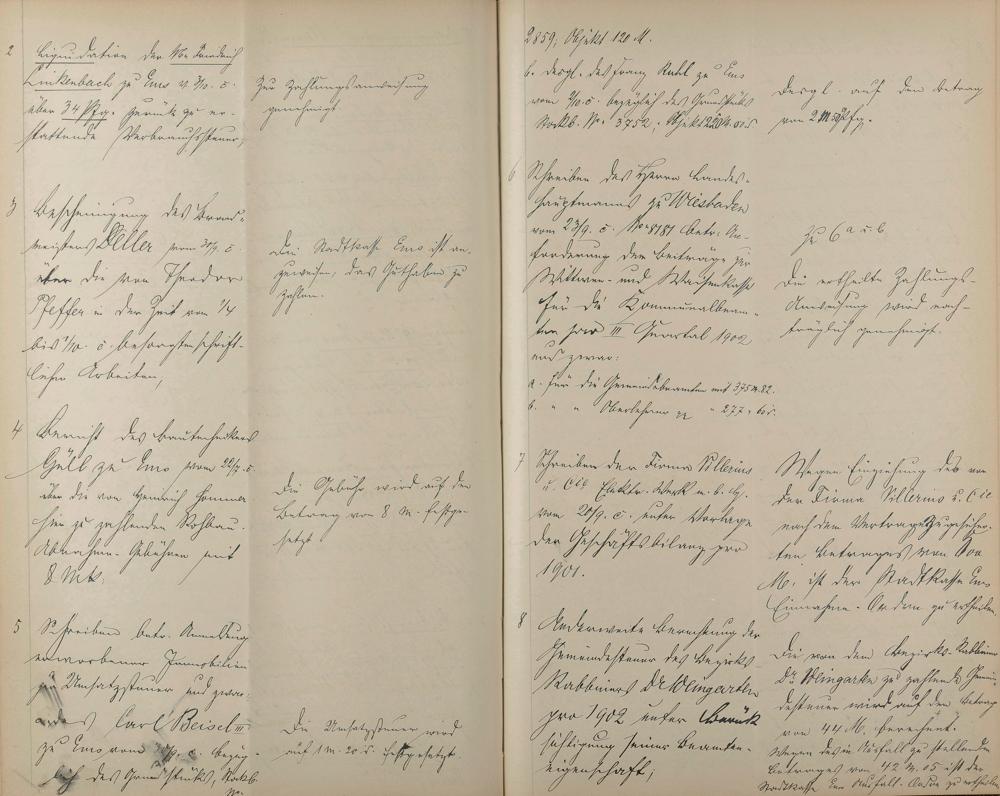 2 Liquidation der Wwe Friedrich
Linkenbach zu Ems v. 3/10. c.
über 34 Pfg. zurück zu er-
stattende Verbrauchssteuer,
Zur Zahlungsanweisung
genehmigt
3 Bescheinigung des Brand-
meisters Diller vom 30/9. c.
über die von Theodor
Pfeffer in der Zeit vom 1/4
bis 1/10. c. besorgten schrift-
lichen Arbeiten,
Die Stadtkasse Ems ist an-
zuweisen, das Guthaben zu
zahlen.
4 Bericht des Bautechnikers
Güll zu Ems vom 22/9. c.
über die von Heinrich
hier zu zahlenden Rohbau-
Abnahme-Gebühren mit
8 Mk.
Die Gebühr wird auf den
Betrag von 8 M. festge-
setzt
5 Schreiben betr. Anmeldung
erworbener Immobilien
zur Umsatzsteuer und zwar:
a. des Carl Beisel III
zu Ems vom c. bezüg-
lich des Grundstücks, Stockb.
No.
Die Umsatzsteuer wird
auf 1 M. 20 festgesetzt.
2859; Objekt 120 M.
b. desgl. des Franz Kuhl zu Ems
vom 2/10. c. bezüglich des Grundstücks
Stockb. No. 3752; Objekt
desgl. auf den Betrag
von 2 M Pfg.
6 Schreiben des Herrn Landes-
hauptmanns zu Wiesbaden
vom 23/9. c. No 8181 betr. An-
forderung der Beiträge zur
Wittwen- und Waisenkasse
für die Kommunalbeam-
ten pro III Quartal 1902
und zwar:
a. für die Gemeindebeamten mit 375 M. 82.
b. " " Oberlehrer " 277 "
Zu 6 a u. b.
Die ertheilte Zahlungs-
Anweisung wird nach-
träglich genehmigt.
7 Schreiben der Firma Villerius
u. Cie Elektr. Werk m. b. H.
vom 20/9. c. unter Vorlage
der Geschäftsbilanz pro
1901.
Wegen Einziehung des von
der Firma Villerius u. Cie
nach dem Vertrage zuzuführen-
ten Betrages von
M. ist der Stadtkasse Ems
Einnahme-Ordre zu ertheilen
8 Anderweite Berechnung der
Gemeindesteuer des Bezirks
Rabbiners Dr Weingarten
pro 1902 unter Berück
sichtigung seiner Beamten-
eigenschaft;
Die von dem Bezirks-Rabbiner
Dr Weingarten zu zahlende Gemein-
desteuer wird auf den Betrag
von 44 M. berechnet.
Wegen des in Ausfall zu stellenden
Betrages von 42 M. 05 ist der
Stadtkasse Ems Ausfall-Ordre zu ertheilen